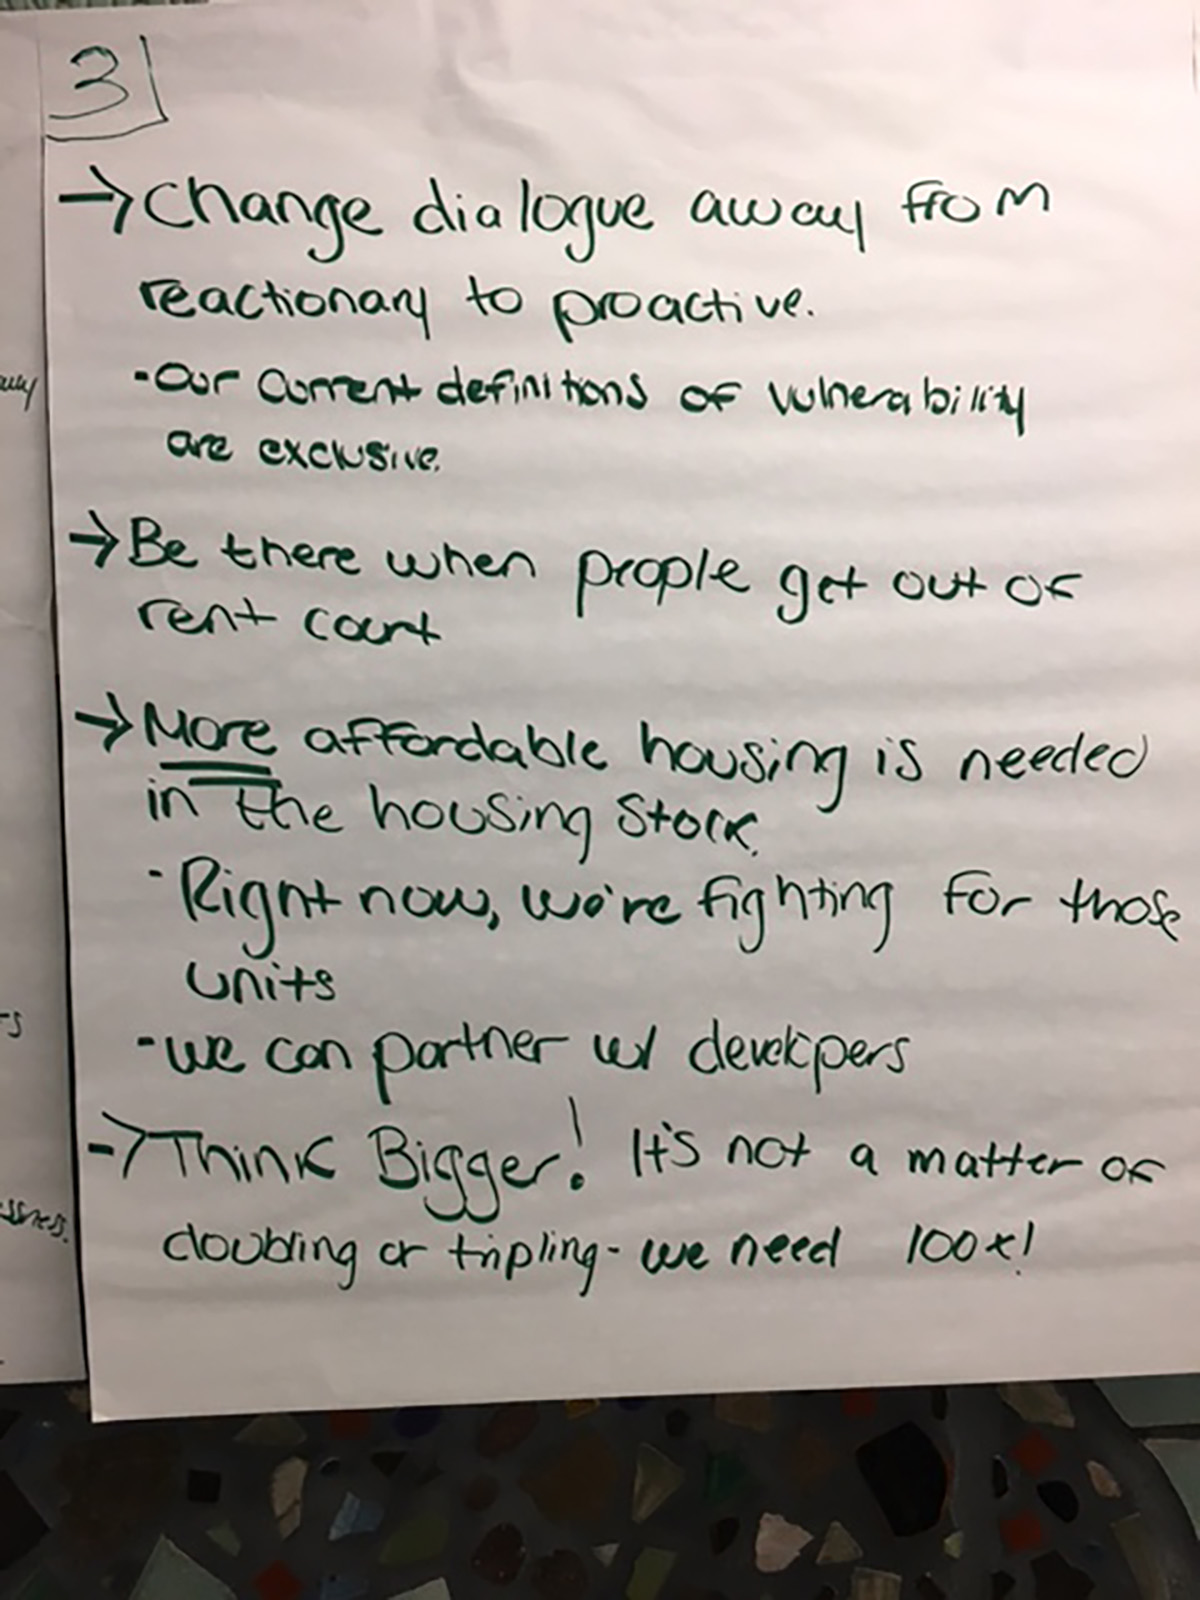 3
→ Change dialogue away from
reactionary to proactive.
- Our current definitions of vulnerability
are exclusive.
→ Be there when people get out of
rent court
→ More affordable housing is needed
in the housing stock.
- Right now, we're fighting for those
units
- we can partner w/ developers
→ Think Bigger! It's not a matter of
doubling or tripling - we need 100x!